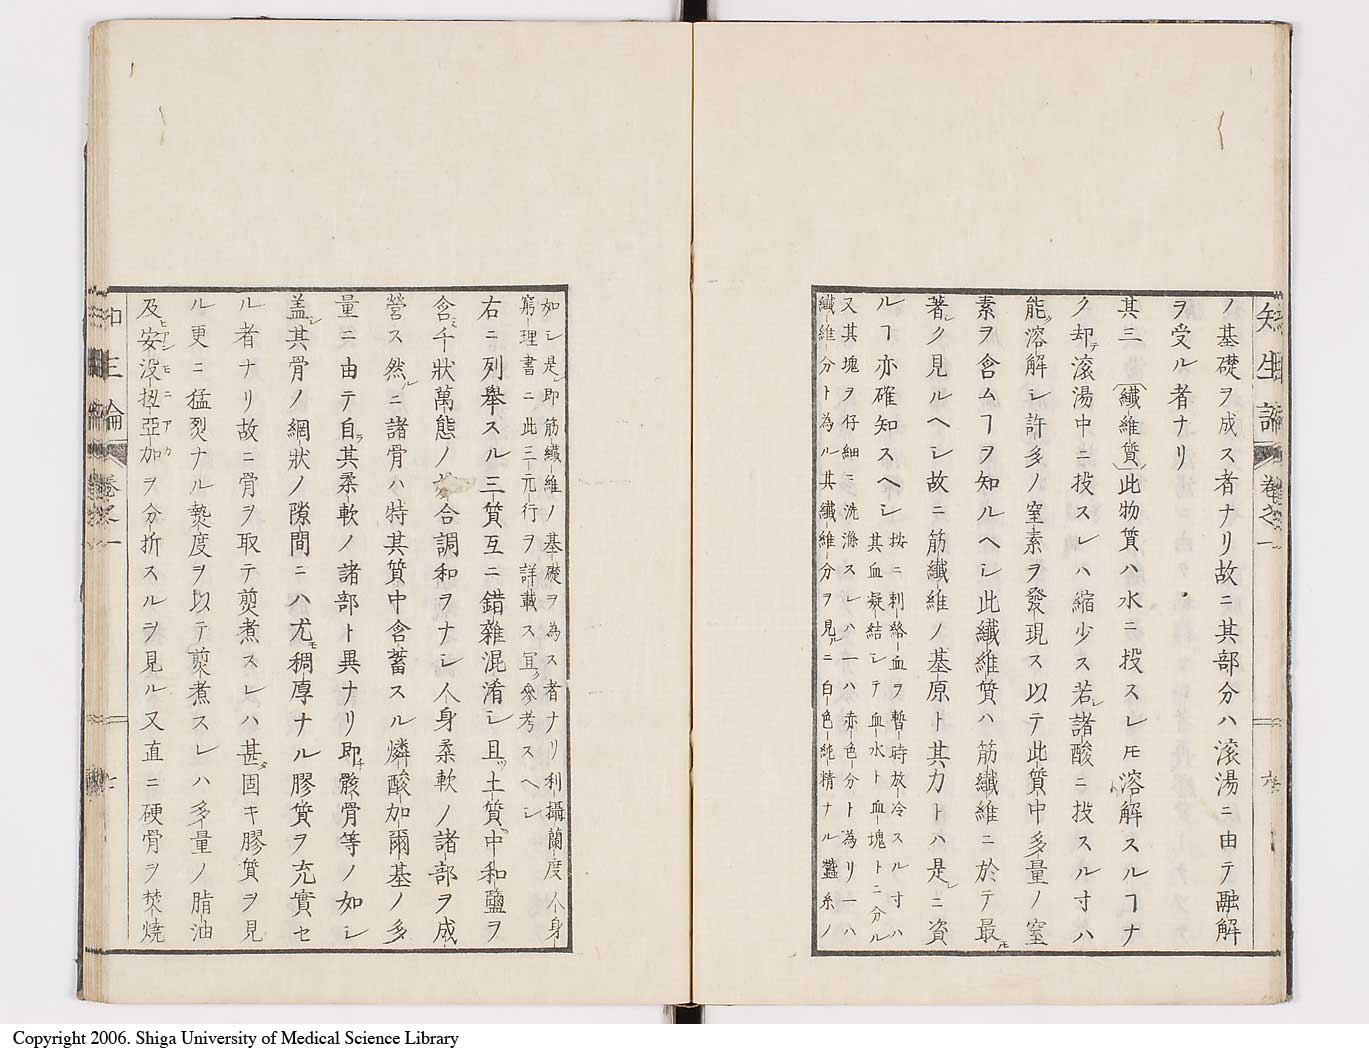 知生論 卷之一 六
ノ基礎ヲ成ス者ナリ故ニ其部分ハ滚湯ニ由テ融解
ヲ受ル者ナリ
其三(纎維質)此物質ハ水ニ投スレ𪜈溶解スルヿナ
ク却テ滚湯中ニ投スレハ縮少ス若シ諸酸ニ投スル寸ハ
能ク溶解シ許多ノ窒素ヲ發現ス以テ此質中多量ノ窒
素ヲ含ムヿヲ知ルヘシ此纎維質ハ筋纎維ニ於テ最モ
著シク見ルヘシ故ニ筋纎維ノ基原ト其力トハ是レニ資
ルヿ亦確知スヘシ
按ニ刺絡血ヲ暫時放冷スル寸ハ
其血凝結シテ血水ト血塊トニ分ル
又其塊ヲ仔細ニ洗滌スレハ一ハ赤色分ト為リ一ハ
纎維分ト為ル其纎維分ヲ見ルニ白色純精ナル蠶糸ノ
如シ是レ即筋纎維ノ基礎ヲ為ス者ナリ利攝蘭度人身
窮理書ニ此三元行ヲ詳載ス宜ク參考スヘシ
右ニ列舉スル三質互ニ錯雜混淆シ且ツ土質中和鹽ヲ
含ミ千狀萬態ノ合調和ヲナシ人身柔軟ノ諸部ヲ成
營ス然ルニ諸骨ハ特其質中含蓄スル燐酸加爾基ノ多
量ニ由テ自ラ其柔軟ノ諸部ト異ナリ即チ骸骨等ノ如シ
盖シ其骨ノ網狀ノ隙間ニハ尤モ稠厚ナル膠質ヲ充實セ
ル者ナリ故ニ骨ヲ取テ煎煮スレハ甚タ固キ膠質ヲ見
ル更ニ猛烈ナル熱度ヲ以テ煎煮スレハ多量ノ脂油
及ヒ安没扭亞加アンモニアカヲ分析スルヲ見ル又直ニ硬骨ヲ焚燒
知生論 卷之一 七
Copyright 2006. Shiga University of Medical Science Library